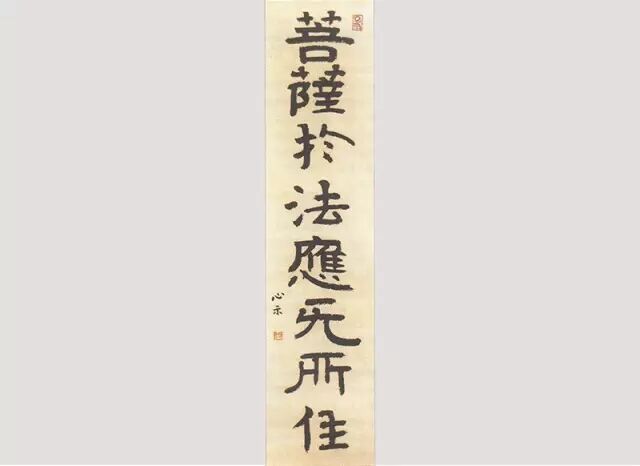 菩薩於法應无所住
心示